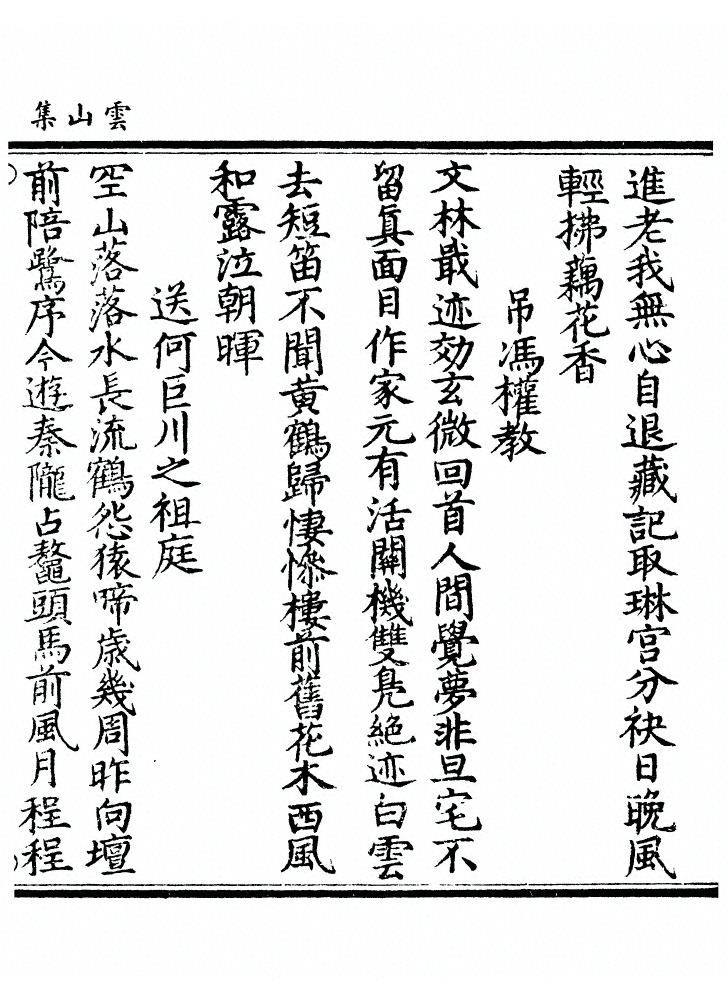 雲山集
進老我無心自退藏記取琳宮分袂日晚風
輕拂藕花香
吊馮權教
文林戢迹効玄微回首人間覺夢非旦宅不
留眞面目作家元有活關機雙鳧絕迹白雲
去短笛不聞黃鶴歸悽慘樓前舊花木西風
和露泣朝暉
送何巨川之祖庭
空山落落水長流鶴怨猿啼歲幾周昨向壇
前陪鷺序今遊秦隴占鼇頭馬前風月程程